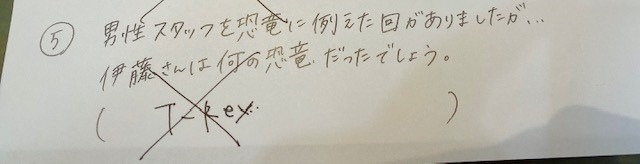 ⑤ 男性スタッフを恐竜に例えた回がありましたが…
伊藤さんは何の恐竜だったでしょう。
( T-key.. )